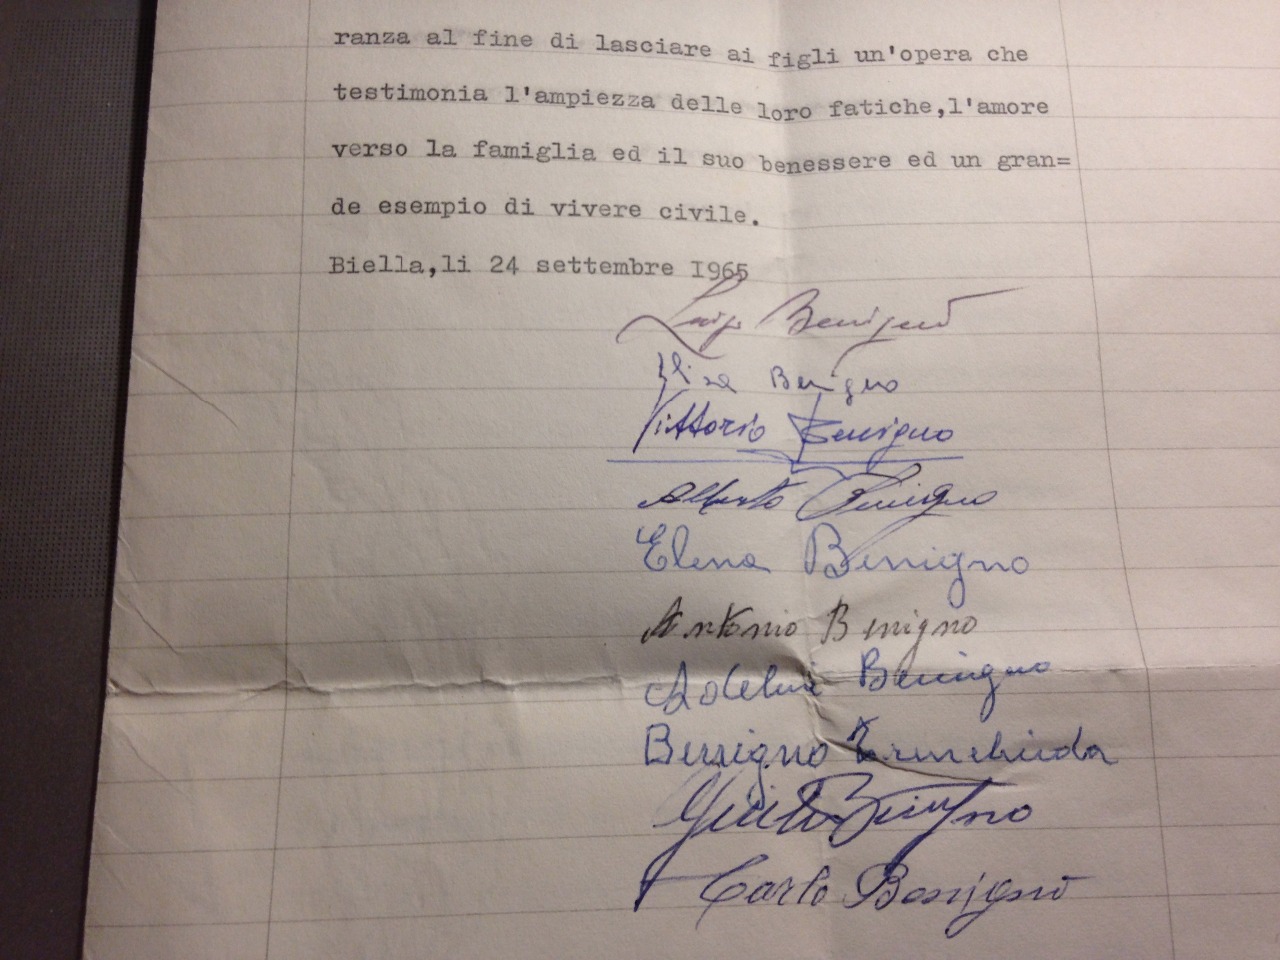 ranza al fine di lasciare ai figli un'opera che
testimonia l'ampiezza delle loro fatiche,l'amore
verso la famiglia ed il suo benessere ed un gran=
de esempio di vivere civile.
Biella,li 24 settembre I965
Luigi Benigno
Elisa Benigno
Vittorio Benigno
Alberto Benigno
Elena Benigno
Antonio Benigno
Benigno
Benigno
Benigno
Carlo Benigno